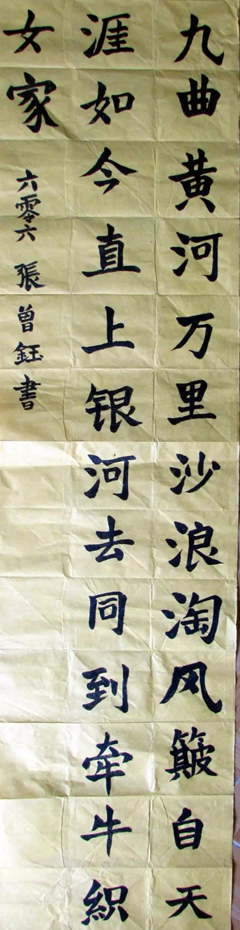 九曲黄河万里沙浪淘风簸自天
涯如今直上银河去同到牵牛織
女家
六零六 張曾鈺書